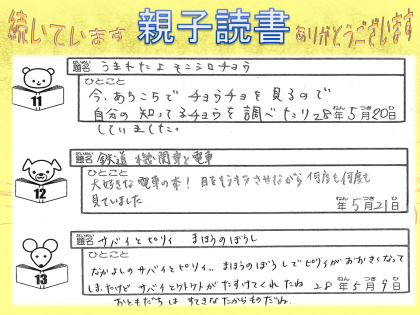 続いています 親子読書 ありがとうございます
だいめい
題名 うまれたよ モンシロチョウ
ひとこと
今、あちこちで チョウチョを見るので
自分の知ってるチョウを調べたり
していました。
28年5月20日
ねん つき にち
11
だいめい
題名 鉄道 機関車と電車
ひとこと
大好きな電車の本! 目をキラキラさせながら 何度も何度も
見ていました
ねん つき にち
年5月21日
12
だいめい
題名 サバイとピリィ まほうのぼうし
ひとこと
なかよしのサバイとピリィ。 まほうのぼうしでピリィがおかきくなって
しまったけど サバイとクトクトがたすけてくれたね
ねん つき にち
28年5月9日
おともだちは すてきなたからものだね。
13